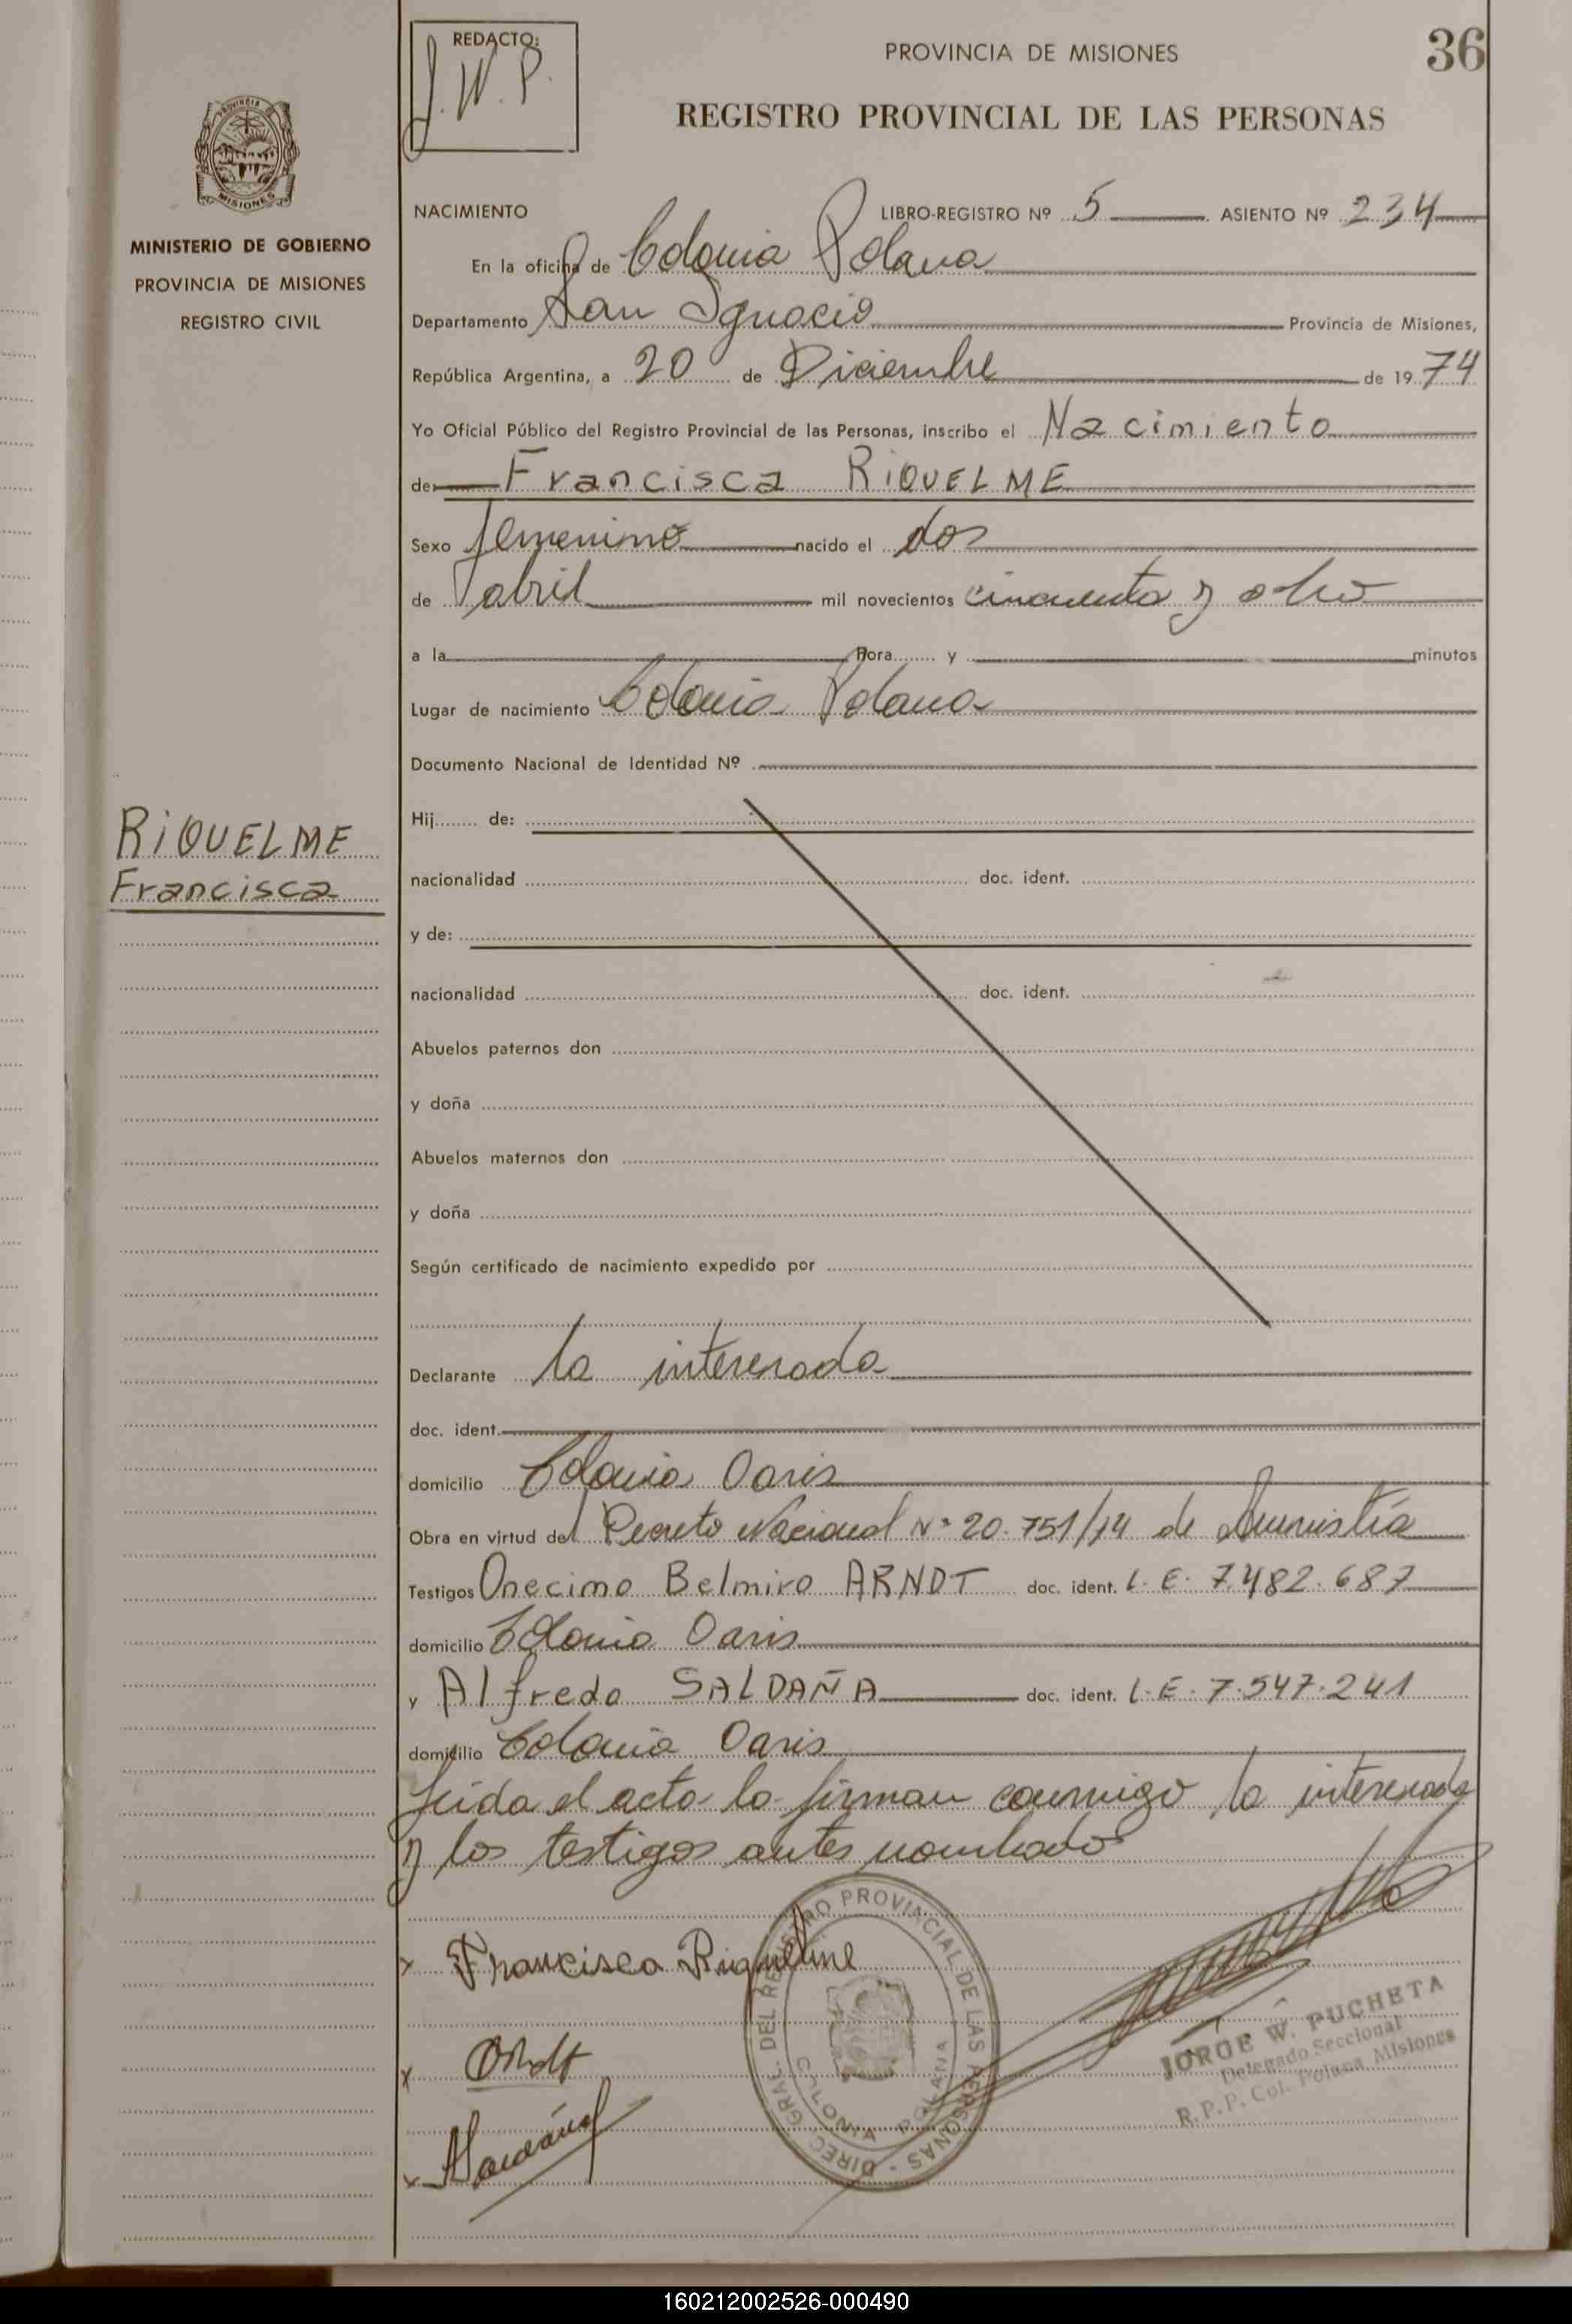 REDACTO:
J. W. P.
PROVINCIA DE MISIONES
36
REGISTRO PROVINCIAL DE LAS PERSONAS
PROVINCIA
MISIONES
MINISTERIO DE GOBIERNO
PROVINCIA DE MISIONES
REGISTRO CIVIL
NACIMIENTO LIBRO-REGISTRO Nº 5 ASIENTO Nº 234
En la oficina de Colonia Polana
Departamento San Ignacio Provincia de Misiones,
República Argentina, a 20 de Diciembre de 1974
Yo Oficial Público del Registro Provincial de las Personas, inscribo el Nacimiento
de Francisca RIQUELME
Sexo femenino nacido el dos
de abril mil novecientos cincuenta y ocho
a la hora y minutos
Lugar de nacimiento Colonia Polana
Documento Nacional de Identidad Nº
RIQUELME
Francisca
Hij de:
nacionalidad doc. ident.
y de:
nacionalidad doc. ident.
Abuelos paternos don
y doña
Abuelos maternos don
y doña
Según certificado de nacimiento expedido por
Declarante la interesada
doc. ident.
domicilio Colonia Oasis
Obra en virtud del Decreto Nacional Nº 20.751/74 de Amnistía
Testigos Onecimo Belmiro ARNDT doc. ident. L.E. 7.482.687
domicilio Colonia Oasis
y Alfredo SALDAÑA doc. ident. L.E. 7.547.241
domicilio Colonia Oasis
Leida el acta la firman conmigo la interesada
y los testigos antes nombado
x Francisca Riquelme
x Arndt
x
DIREC. GRAL. DEL REGISTRO PROVINCIAL DE LAS PERSONAS -
COLONIA POLANA
JORGE W. PUCHETA
Delegado Seccional
R.P.P. Col. Polana Misiones
160212002526-000490